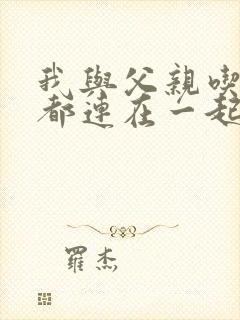 我與父親喫
都連在一起
羅杰